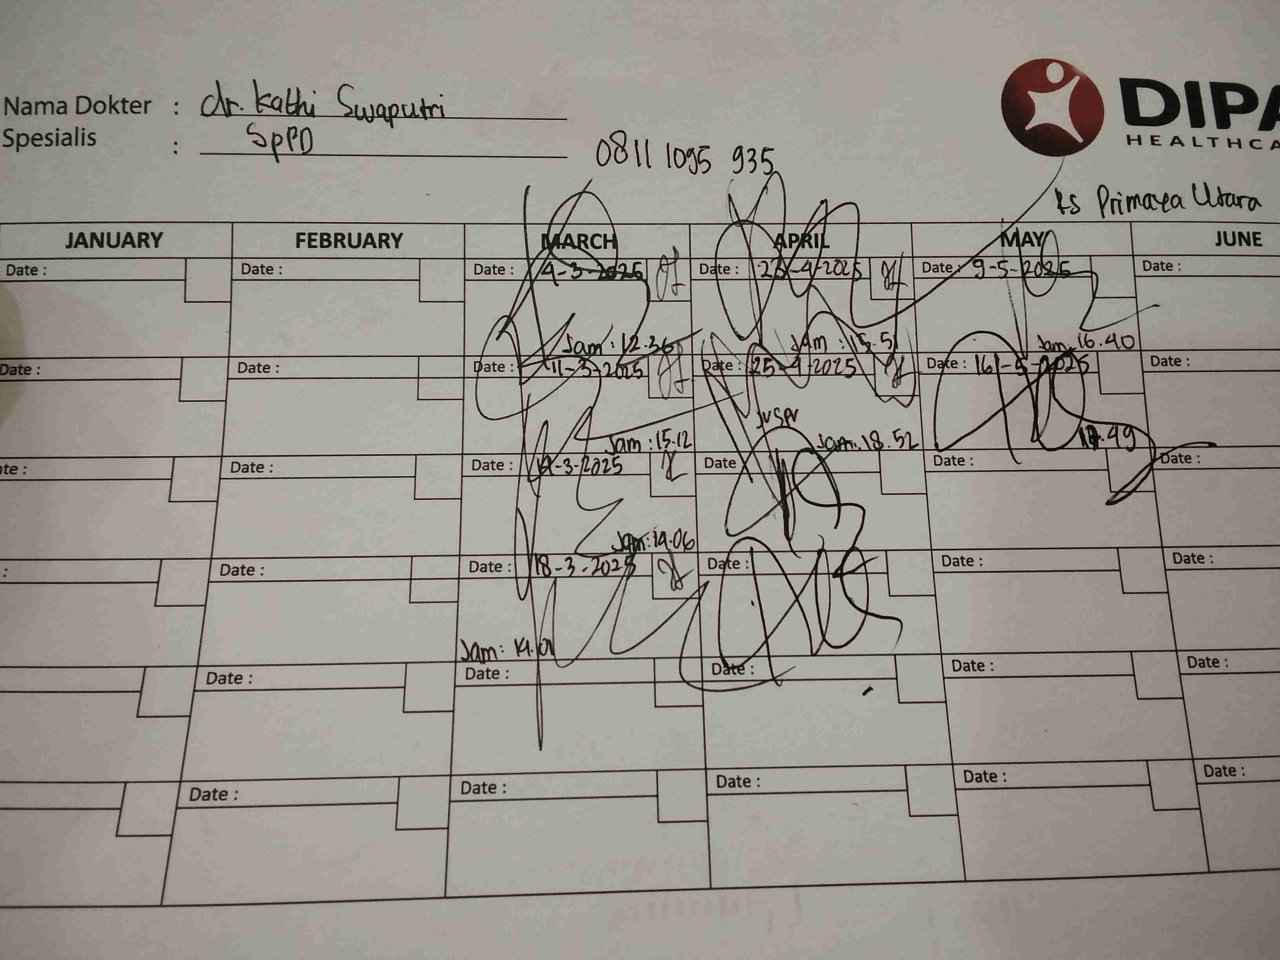 Nama Dokter : dr. Kathi Swaputri
Spesialis : SpPD
0811 1095 935
DIPA
HEALTHCA
RS Primaya Utara
JANUARY FEBRUARY MARCH APRIL MAY JUNE
Date : Date : Date : 4-3-2025 Date : 23-4-2025 Date : 9-5-2025 Date :
Jam : 12.36 Jam : 15.51 Jam 16.40
Date : Date : Date : 11-3-2025 Date : 25-4-2025 Date : 16-5-2025 Date :
Jam : 15.12 Jam : 18.52 17.49
te : Date : Date : 14-3-2025 Date Date : Date :
Jam : 14.06
: Date : Date : 18-3-2025 Date : Date : Date :
Jam : 14.01
Date : Date : Date : Date : Date :
Date : Date : Date : Date : Date :